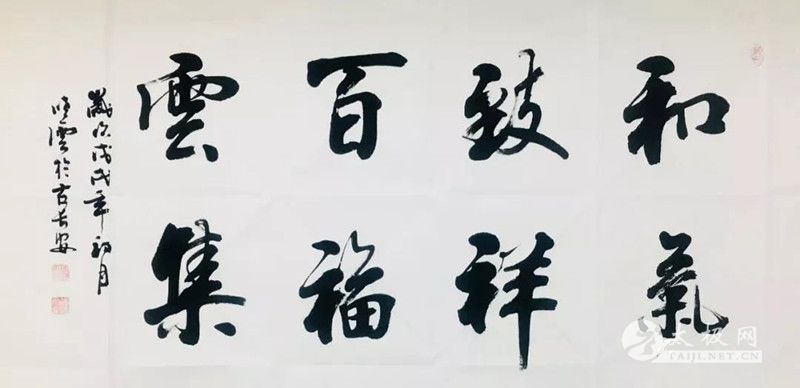 和氣
致祥
百福
雲集
歲次戊戌年初月
曉雲於古長安
太极网
TAIJI.NET.CN